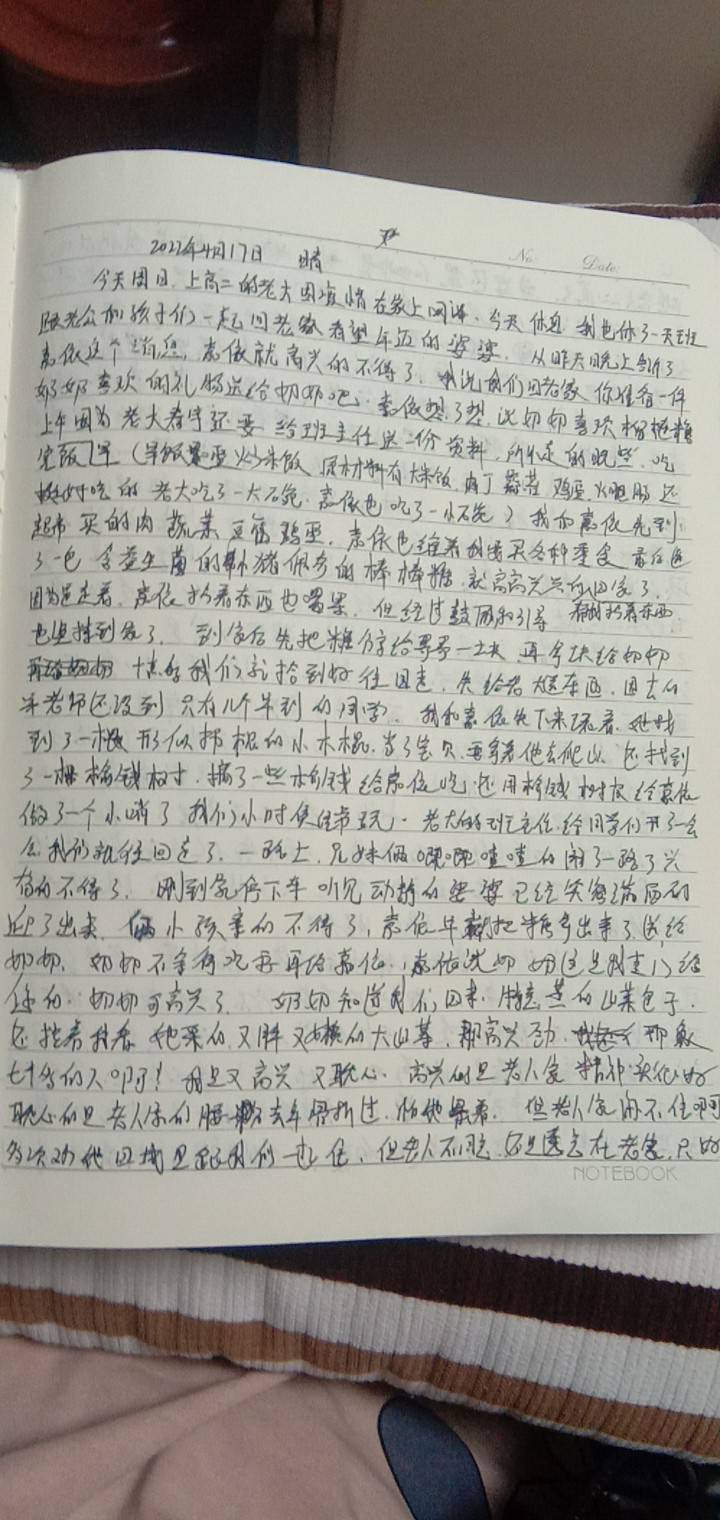 No. Date:
2022年4月17日 晴
今天周日,上高二的老大因疫情在家上网课,今天休息 我也休了一天班
跟老公和孩子们一起回老家看望年迈的婆婆。从昨天晚上听了
嘉依这个消息,嘉依就高兴的不得了。我说我们回老家 你准备一件
奶奶喜欢的礼物送给奶奶吧。嘉依想了想 说奶奶喜欢棒棒糖
上午因为老大着字还要给班主任送一份资料,所以走的晚些,吃
完饭早(早饭是蛋炒米饭 原材料有大米饭,肉丁 蒜苔 鸡蛋 火腿肠 还
挺好吃的 老大吃了一大碗,嘉依也吃了一小碗)我和嘉依先到
超市买的肉 蔬菜 豆腐 鸡蛋,嘉依也缠着我给买各种零食 最后选
了一包含益生菌的小猪佩奇的棒棒糖,就高高兴兴的回家了。
因为是走着,嘉依拎着东西也嚷累,但经过鼓励和引导 拎着东西
也坚持到家了。到家后先把糖分给哥哥一块,再拿块给奶奶
十点多我们就拾到好往回走,先给老大送东西,因去的
早老师还没到 只有几个早到的同学。我和嘉依先下来玩着,她找
到了一根形似拐棍的小木棍,当了宝贝,要拿着他去爬山 还找到
了一棵榆钱树,摘了一些榆钱给嘉依吃,还用榆钱树枝给嘉依
做了一个小哨了 我们小时候经常玩。老大的班主任给同学们开了一会
会我们就往回走了。一路上,兄妹俩嘰嘰喳喳的闹了一路了兴
奋的不得了。刚到家停下车 听见动静的婆婆已经笑容满面的
迎了出来,俩小孩亲的不得了,嘉依早就把糖拿出来了,送给
奶奶,奶奶不舍得吃要再给嘉依,嘉依说奶奶这是我专门给
你的,奶奶可高兴了。奶奶知道我们回来,特意蒸的山菜包子,
还拉着我看她采的又胖又嫩的大山菜,那高兴劲,那像
七十多的人啊!我是又高兴又耽心,高兴的是老人家精神矍铄
耽心的是老人家的腰去年骨折过,怕他累着。但老人家闲不住啊
多次劝他回城里跟我们一起住,但老人不肯,还是愿意在老家,只好
NOTEBOOK